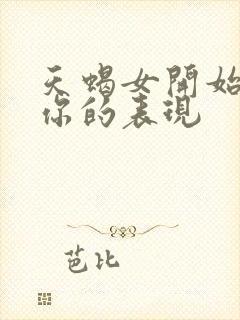 天蝎女開始
你的表現
芭比